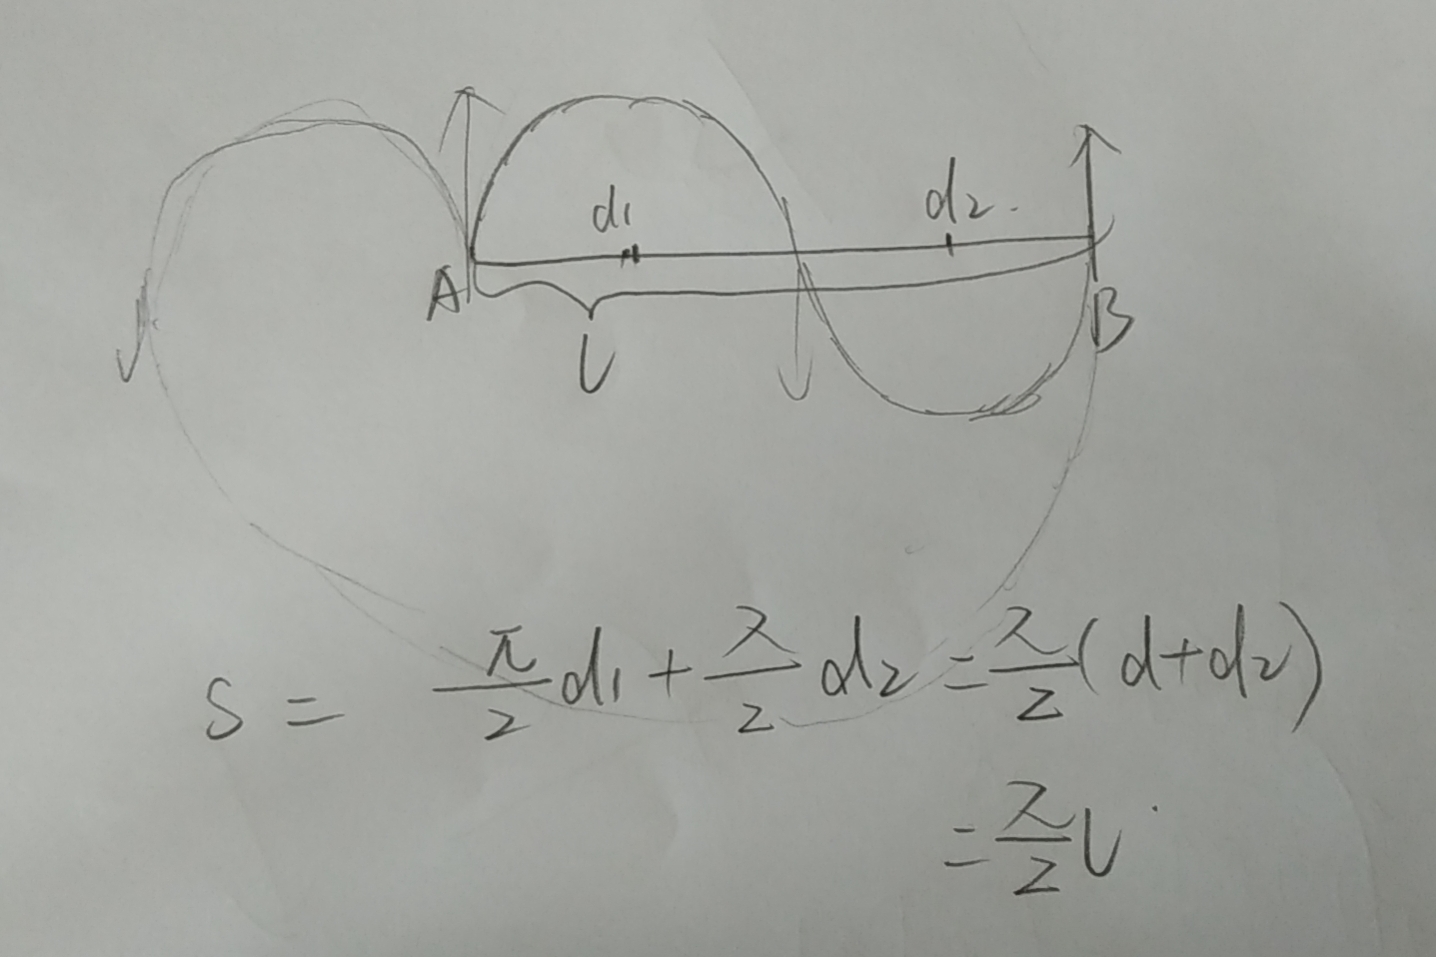 d₁ d₂.
A B
l
S = π/2 d₁ + π/2 d₂ = π/2 (d+d₂)
= π/2 l